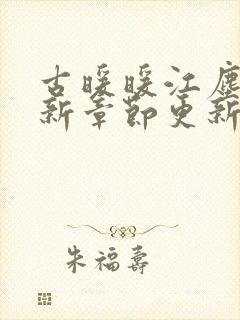 古暖暖江塵
新章節更新
朱福壽